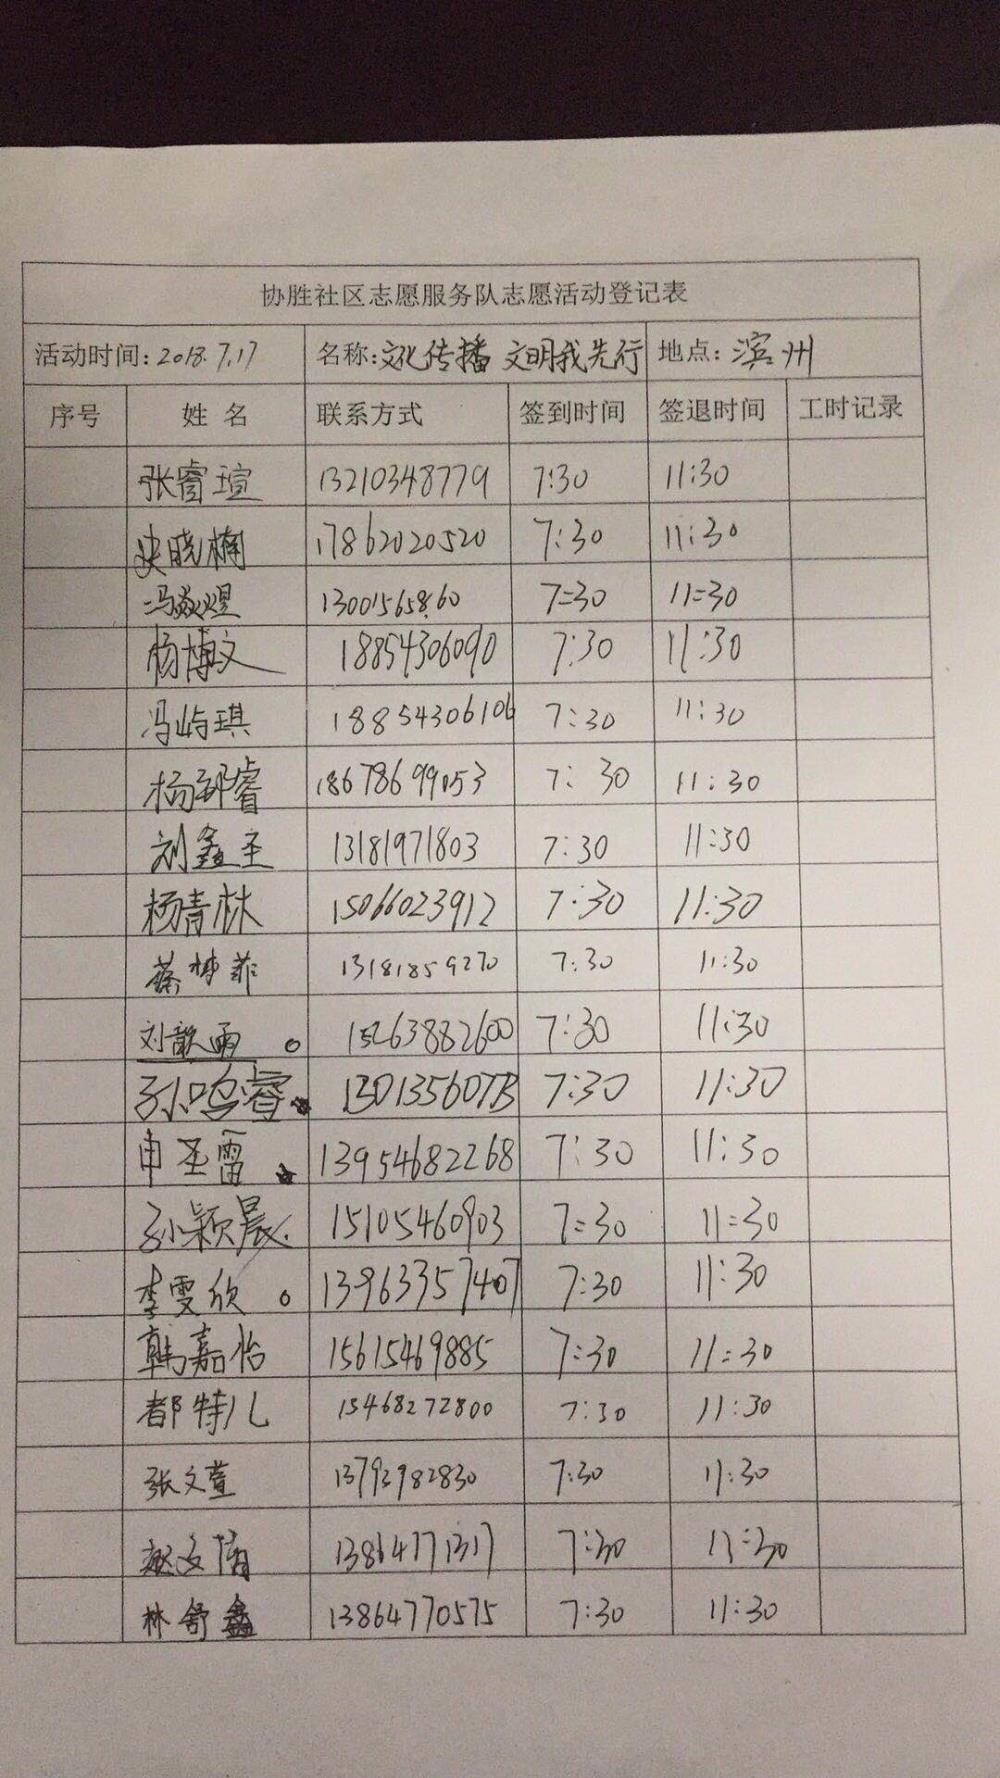 协胜社区志愿服务队志愿活动登记表
活动时间:2018.7.17 名称:文化传播 文明我先行 地点:滨州
序号 姓名 联系方式 签到时间 签退时间 工时记录
张睿瑄 13210348779 7:30 11:30
史晓楠 17862020520 7:30 11:30
冯焱煜 13001565860 7:30 11:30
杨博文 18854306090 7:30 11:30
冯屿琪 18854306106 7:30 11:30
杨邵睿 18678699053 7:30 11:30
刘鑫圣 13181971803 7:30 11:30
杨青林 15066023912 7:30 11:30
蔡梦菲 13181859270 7:30 11:30
刘歆雨 15263882600 7:30 11:30
孙鸣睿 7:30 11:30
申圣雷 13954682268 7:30 11:30
孙颖晨 15105460903 7:30 11:30
李雯欣 13963357407 7:30 11:30
韩嘉怡 15615469885 7:30 11:30
都特儿 15468272800 7:30 11:30
张文萱 13793982830 7:30 11:30
赵文倩 13864771317 7:30 11:30
林舒鑫 13864770575 7:30 11:30